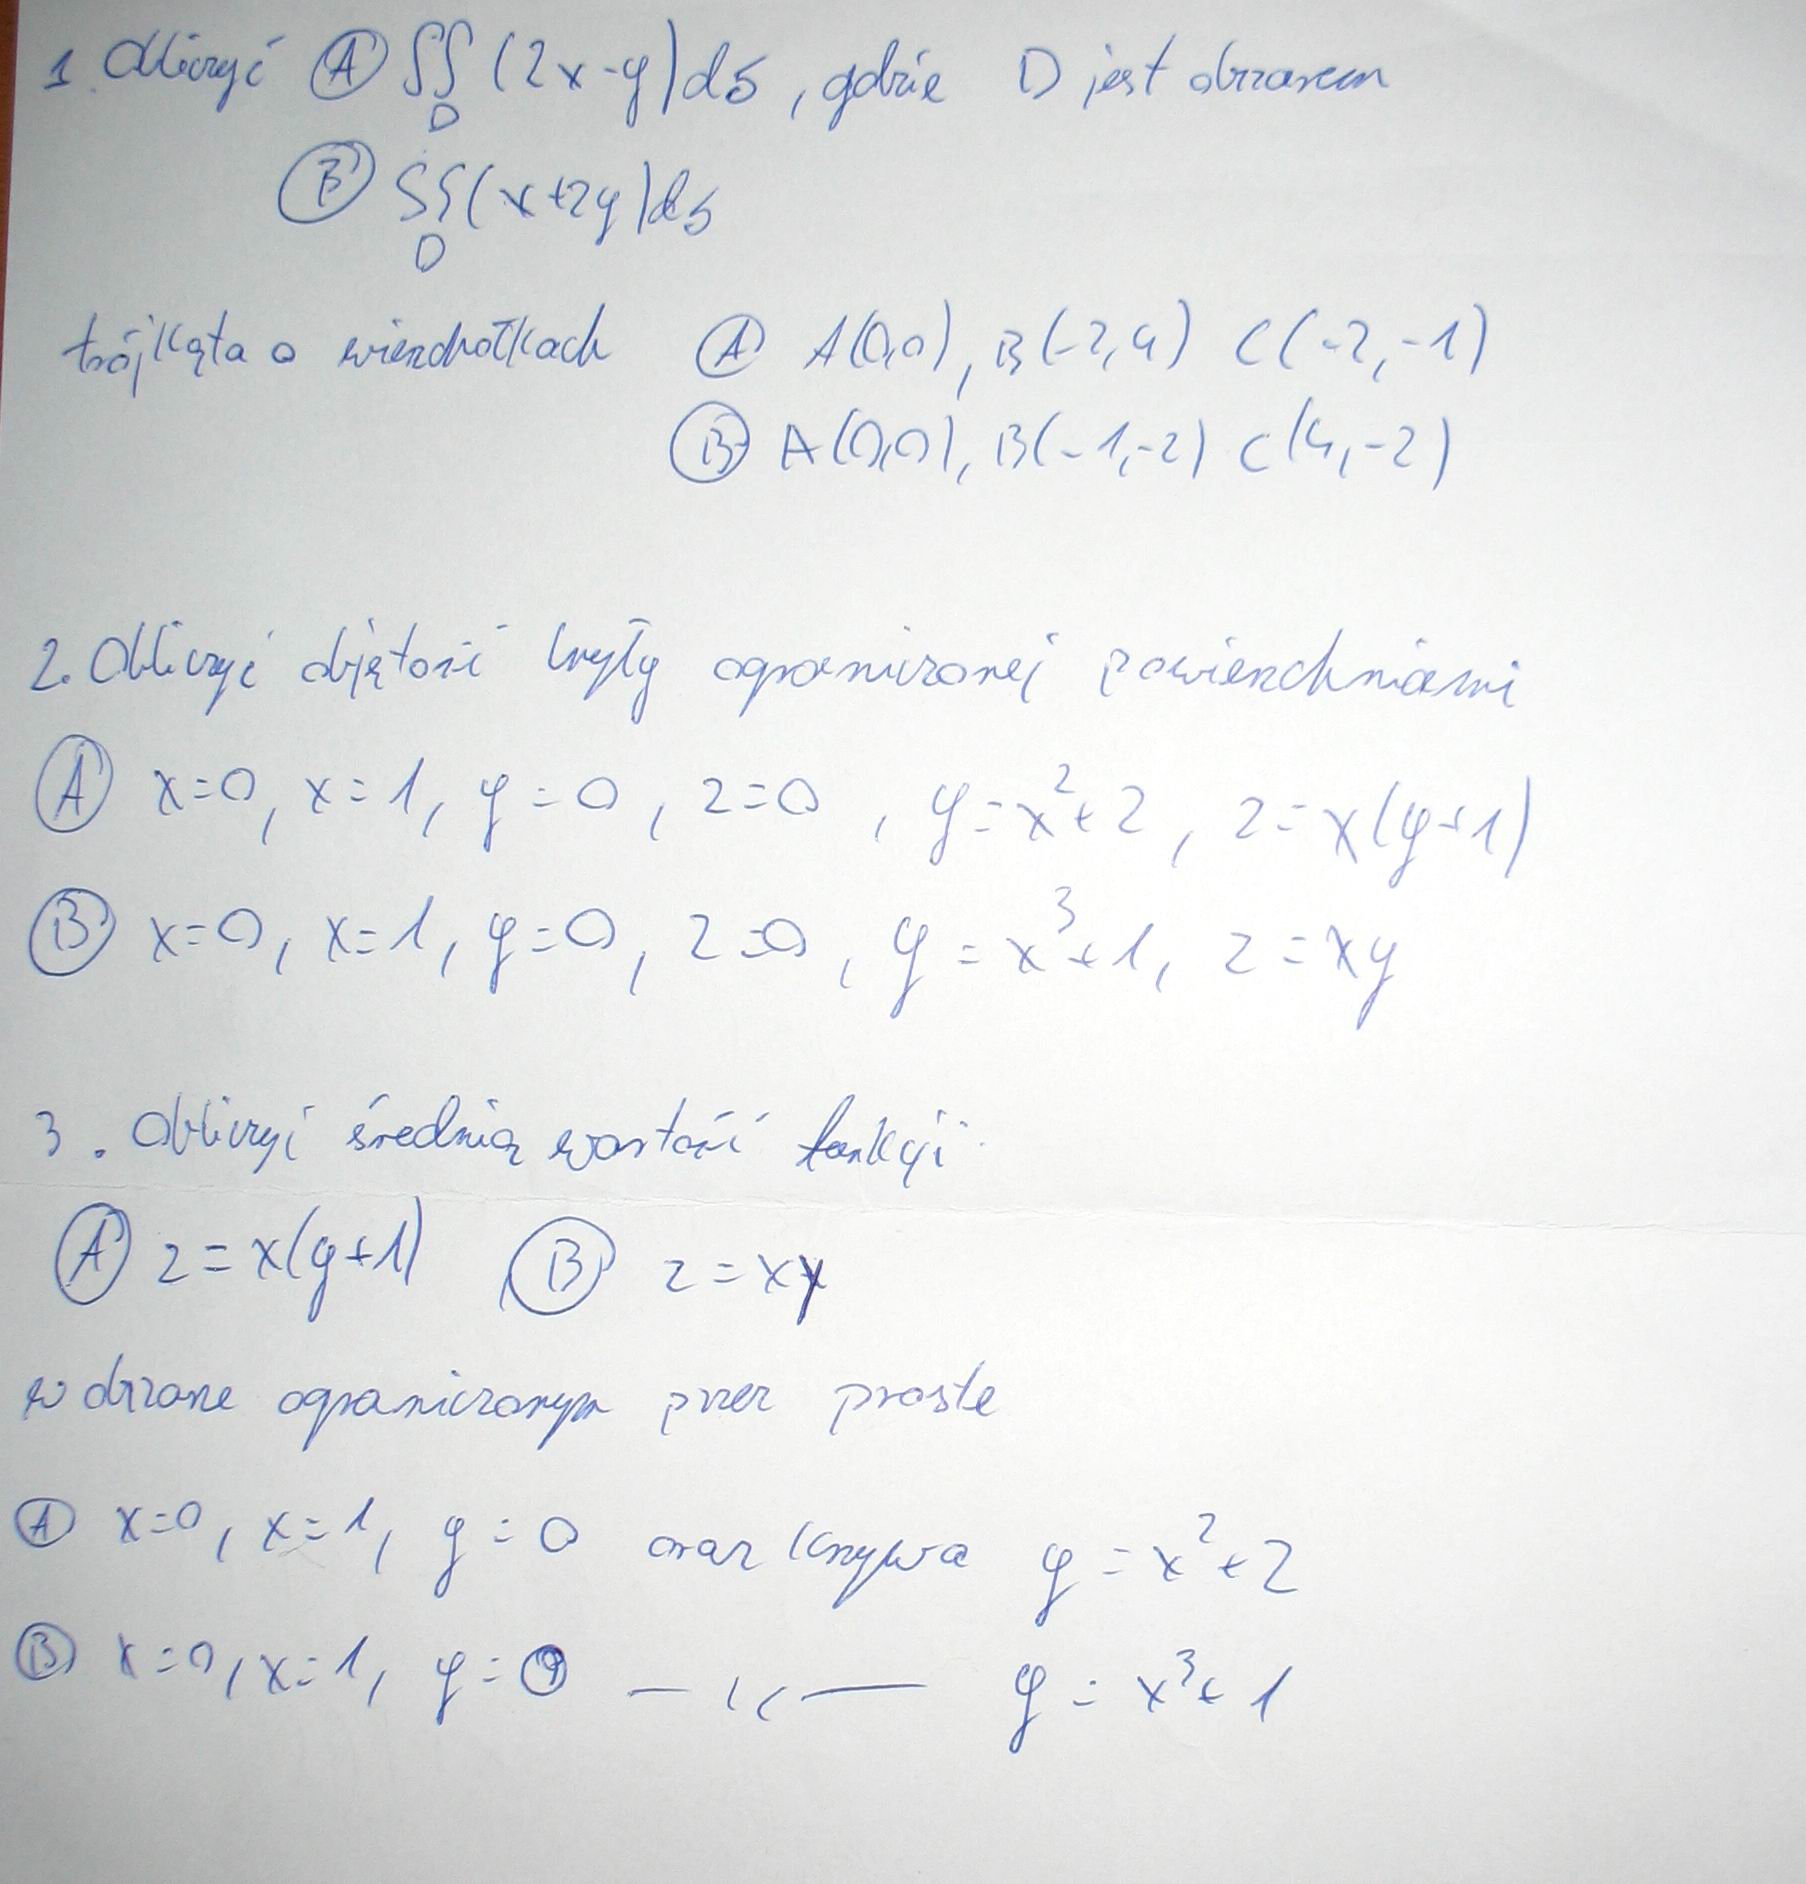 1. Obliczyć Ⓐ ∬ (2x-y)ds, gdzie D jest obszarem
D
Ⓑ ∬(x+2y)ds
D
trójkąta o wierzchołkach Ⓐ A(0,0), B(-2,4) C(-2,-1)
Ⓑ A(0,0), B(-1,-2) C(4,-2)
2. Obliczyć objętość bryły ograniczonej powierzchniami
Ⓐ x=0, x=1, y=0, z=0, y=x²+2, z=x(y+1)
Ⓑ x=0, x=1, y=0, z=0, y=x³+1, z=xy
3. Obliczyć średnią wartość funkcji
Ⓐ z=x(y+1) Ⓑ z=xy
w obszarze ograniczonym przez proste
Ⓐ x=0, x=1, y=0 oraz krzywa y=x²+2
Ⓑ x=0, x=1, y=0 — ,, — y=x³+1